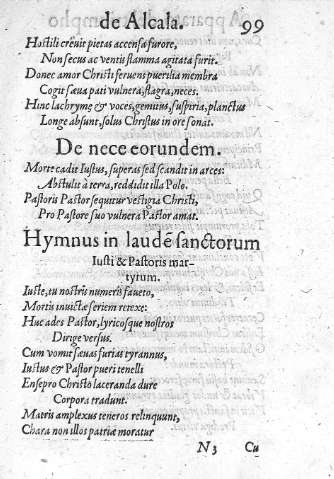 de Alcala. 99
Hostili creuit pietas accensa furore,
Non secus ac ventis flamma agitata furit.
Donec amor Christi feruens puerilia membra
Cogit sæua pati vulnera, flagra, neces.
Hinc lachrymę & voces, gemitus, suspiria, planctus
Longe absunt, solus Christus in ore sonat.
De nece eorundem.
Morte cadit Iustus, superas sed scandit in arces:
Abstulit à terra, reddidit illa Polo.
Pastoris Pastor sequitur vestigia Christi,
Pro Pastore suo vulnera Pastor amat.
Hymnus in laudē sanctorum
Iusti & Pastoris mar-
tyrum.
Iuste, tu nostris numeris faueto,
Mortis inuictæ seriem retexe:
Huc ades Pastor, lyricosque nostros
Dirige versus.
Cum vomit sæuas furias tyrannus,
Iustus & Pastor pueri tenelli
Ense pro Christo laceranda dure
Corpora tradunt.
Matris amplexus teneros relinquunt,
Chara non illos patriæ moratur
N 3 Cu